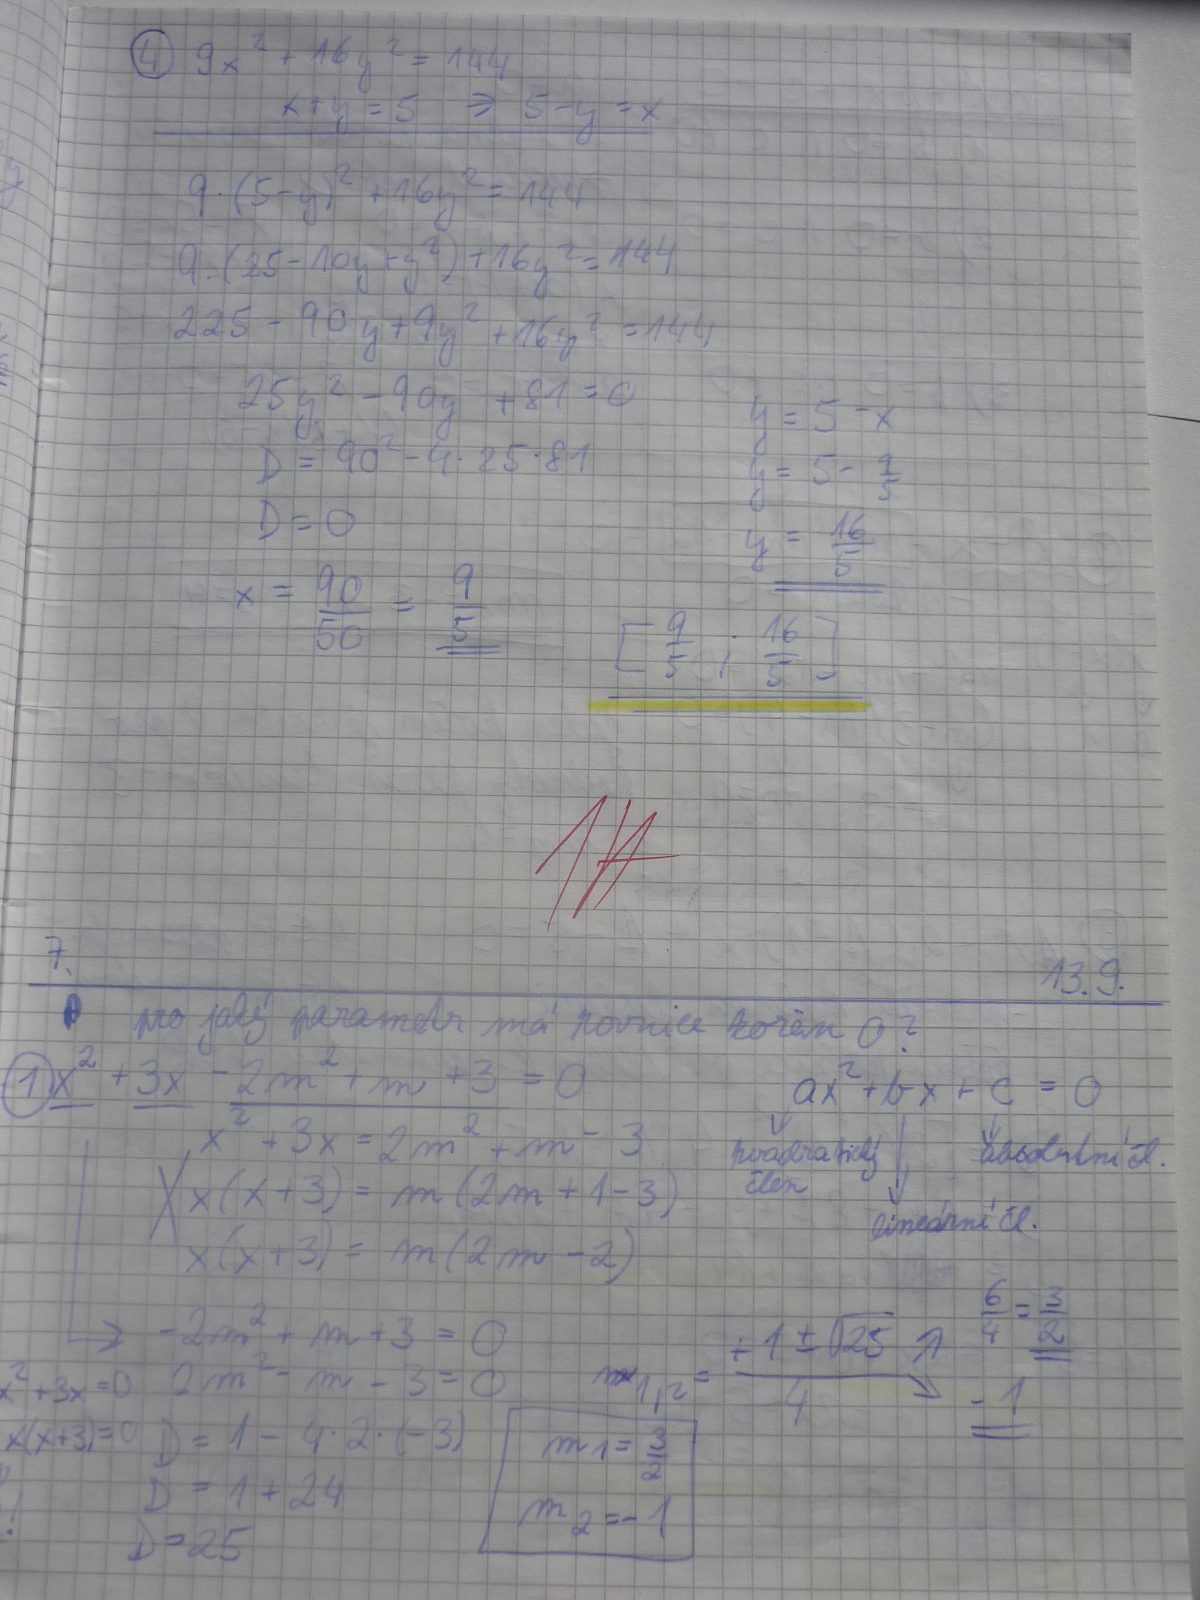 ④ 9x² + 16y² = 144
x + y = 5 ⇒ 5 - y = x
9·(5-y)² + 16y² = 144
9·(25 - 10y + y²) + 16y² = 144
225 - 90y + 9y² + 16y² = 144
25y² - 90y + 81 = 0
D = 90² - 4·25·81
D = 0
x = 90/50 = 9/5
y = 5 - x
y = 5 - 9/5
y = 16/5
[9/5 ; 16/5]
7.
13.9.
pro jaký parametr má rovnice kořen 0?
① x² + 3x - 2m² + m + 3 = 0
x² + 3x = 2m² + m - 3
x(x+3) = m(2m + 1 - 3)
x(x+3) = m(2m - 2)
ax² + bx + c = 0
kvadratický člen
absolutní čl.
lineární čl.
-2m² + m + 3 = 0
x² + 3x = 0
2m² - m - 3 = 0
x(x+3) = 0
D = 1 - 4·2·(-3)
D = 1 + 24
D = 25
m1,2 = + 1 ± √25 / 4
6/4 = 3/2
- 1
m1 = 3/2
m2 = -1